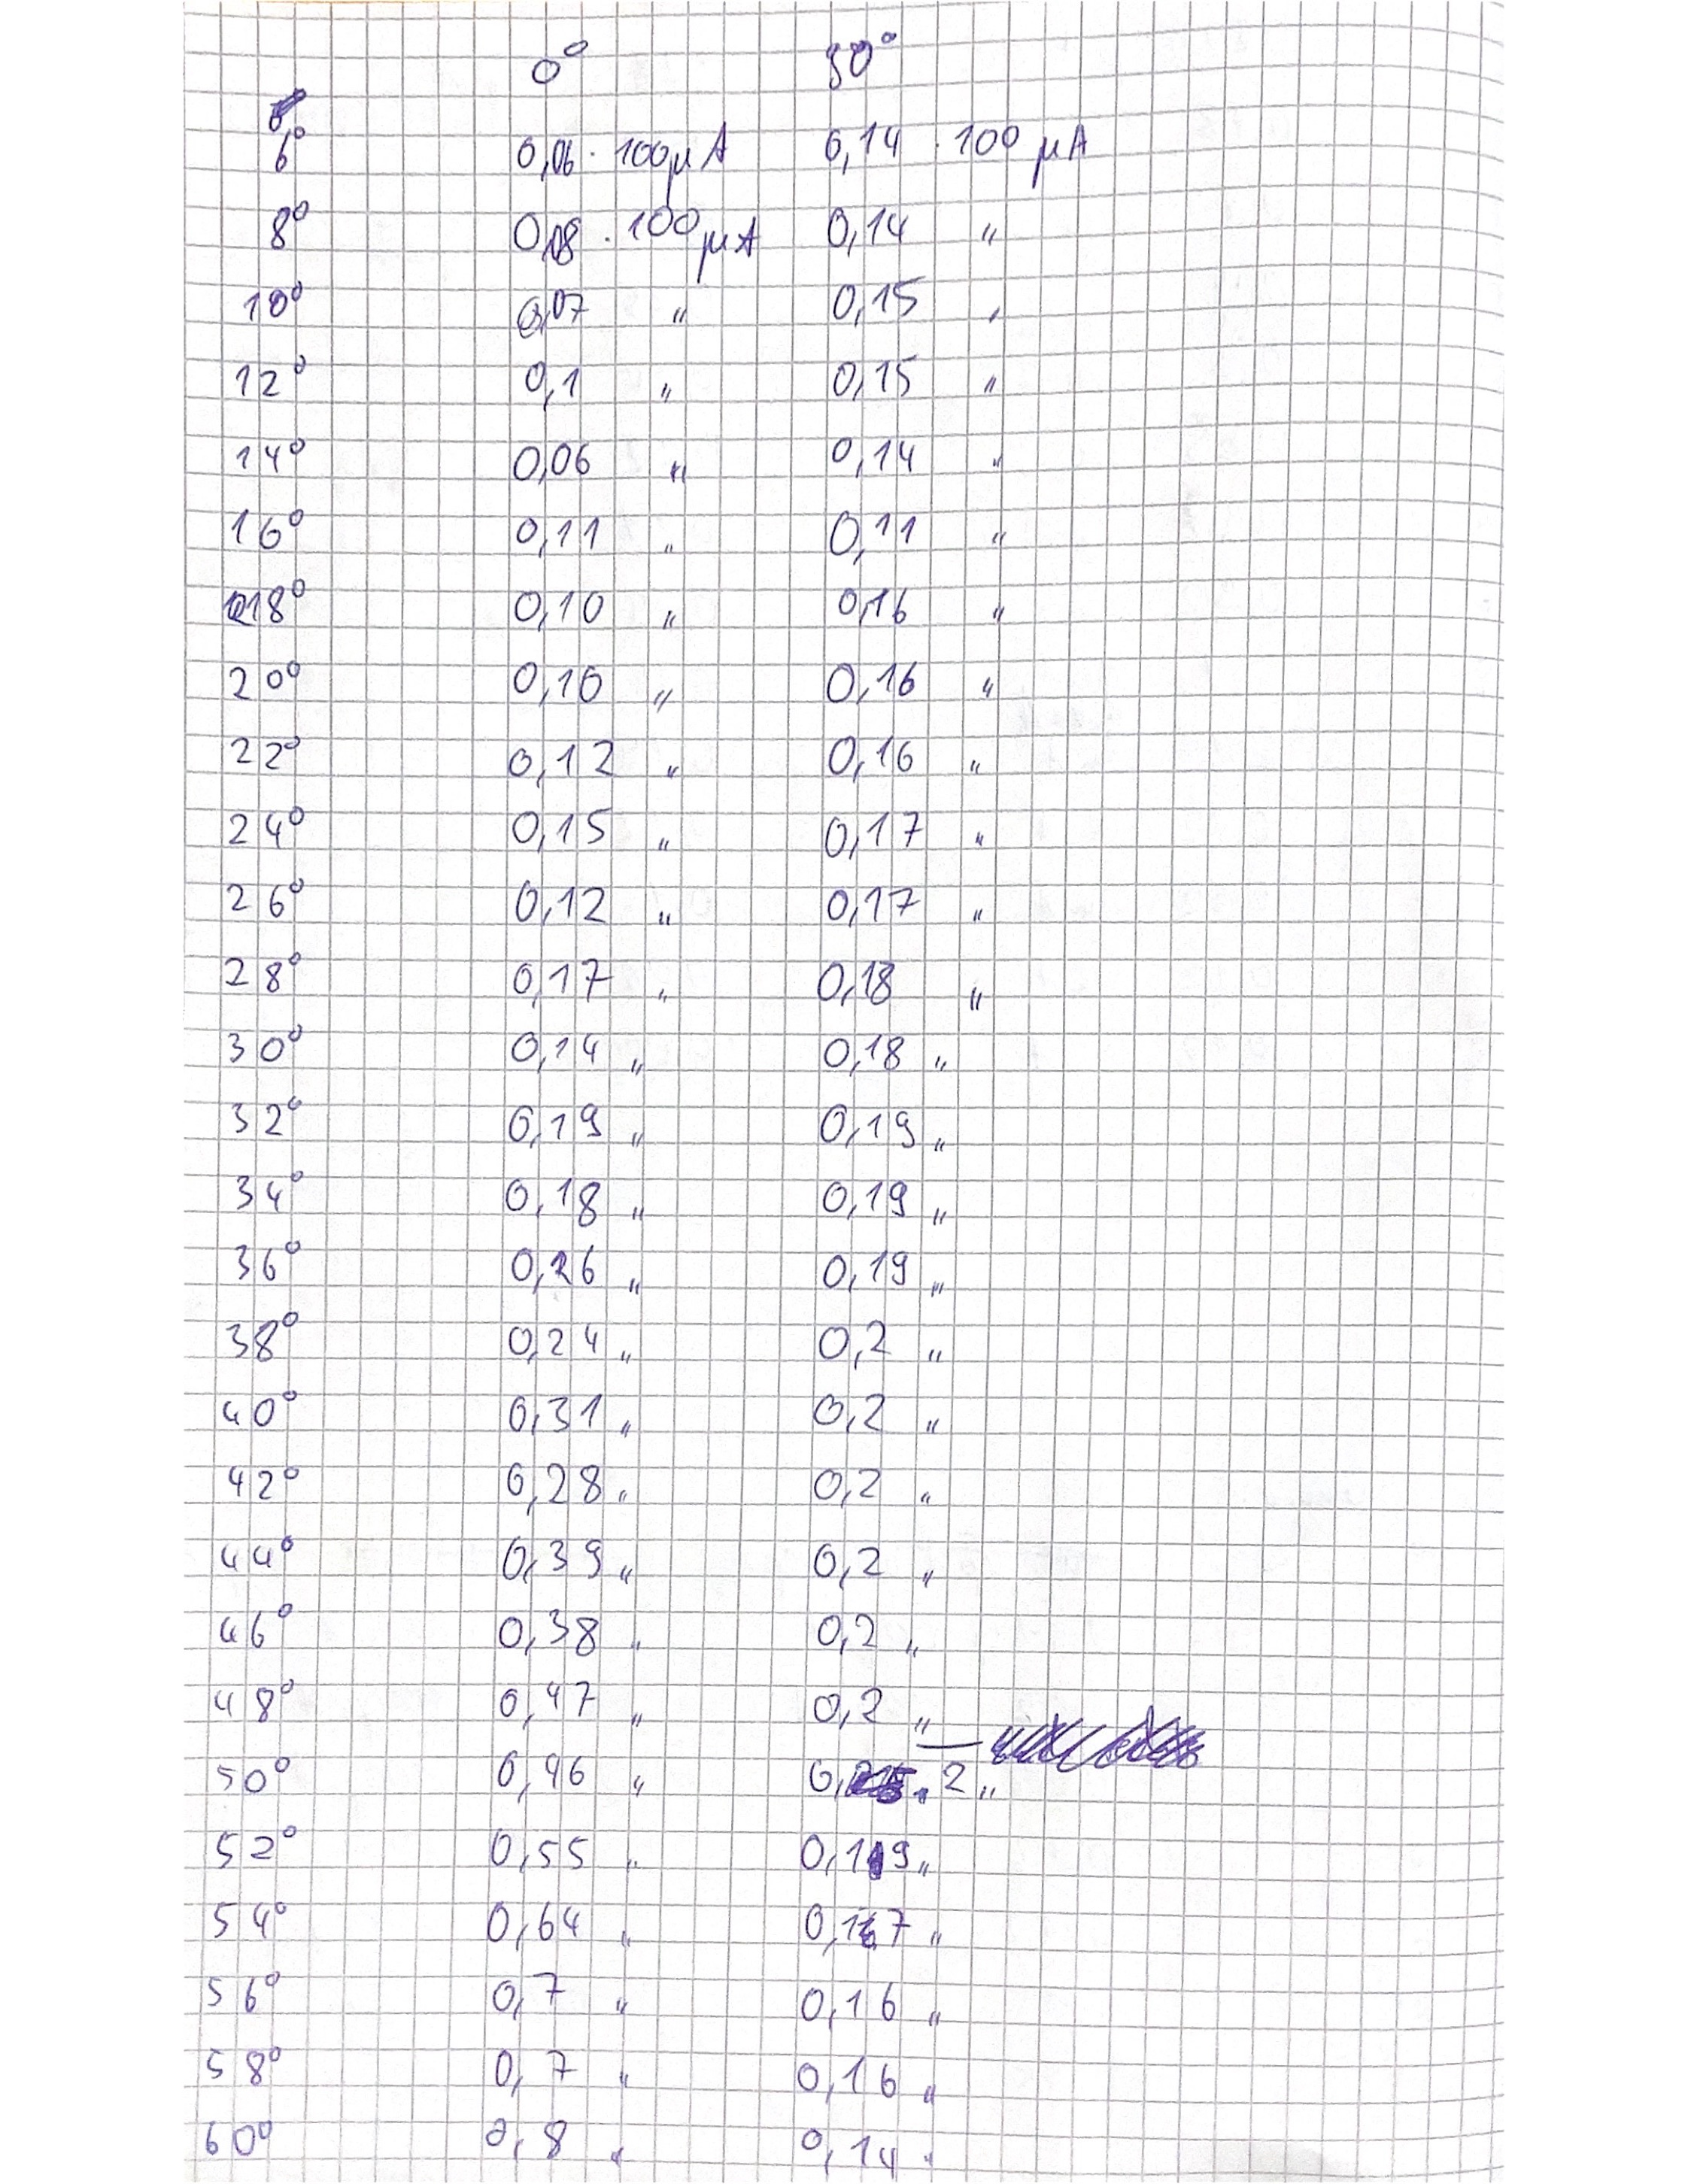 0° 90°
6° 0,06 · 100 µA 0,14 · 100 µA
8° 0,08 · 100 µA 0,14 "
10° 0,07 " 0,15 "
12° 0,1 " 0,15 "
14° 0,06 " 0,14 "
16° 0,11 " 0,11 "
18° 0,10 " 0,16 "
20° 0,10 " 0,16 "
22° 0,12 " 0,16 "
24° 0,15 " 0,17 "
26° 0,12 " 0,17 "
28° 0,17 " 0,18 "
30° 0,14 " 0,18 "
32° 0,19 " 0,19 "
34° 0,18 " 0,19 "
36° 0,26 " 0,19 "
38° 0,24 " 0,2 "
40° 0,31 " 0,2 "
42° 0,28 " 0,2 "
44° 0,39 " 0,2 "
46° 0,38 " 0,2 "
48° 0,47 " 0,2 "
50° 0,46 " 0,2 "
52° 0,55 " 0,19 "
54° 0,64 " 0,17 "
56° 0,7 " 0,16 "
58° 0,7 " 0,16 "
60° 0,8 " 0,14 "